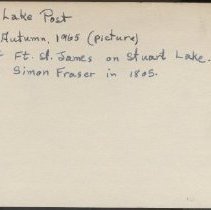 Lake Post
Autumn, 1965 (picture)
Ft. St. James on Stuart Lake.
Simon Fraser in 1805.